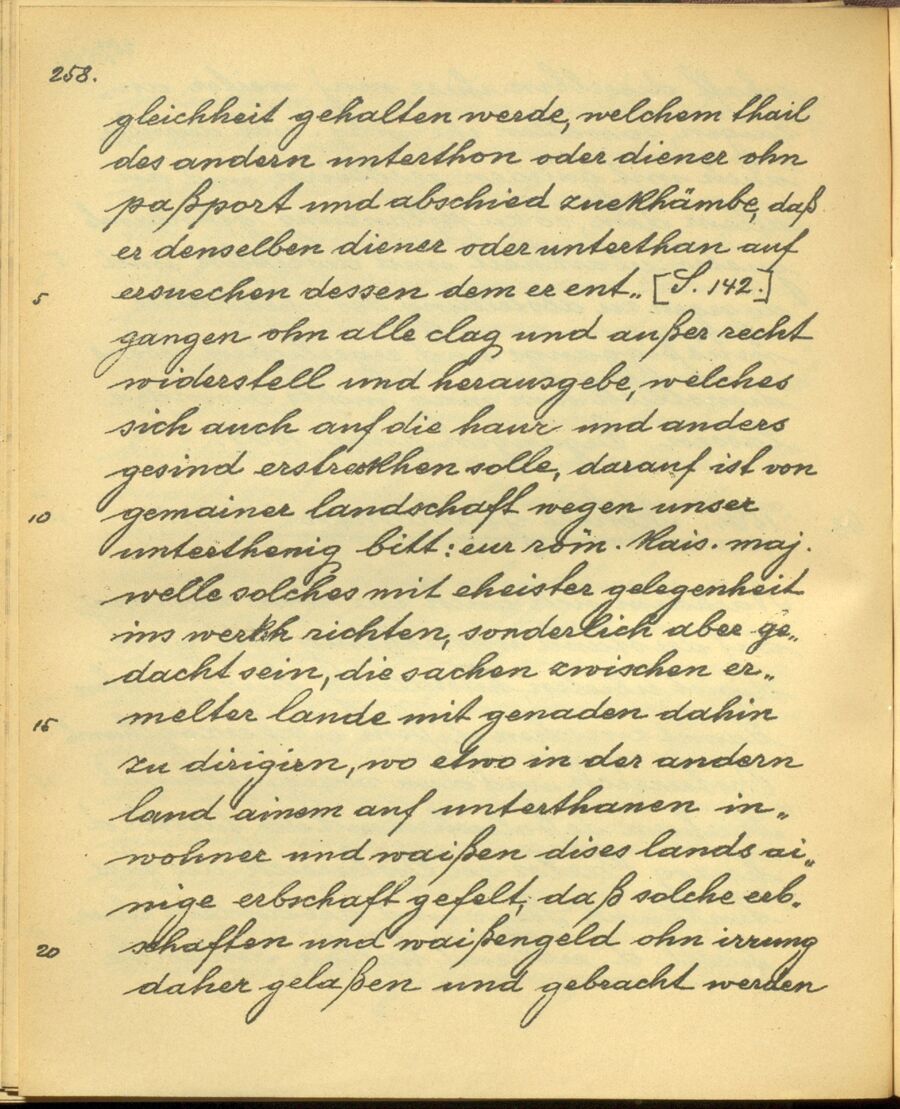 258.
gleichheit gehalten werde, welchem thail
des andern unterthon oder diener ohn
paßport und abschied zuekhämbe, daß
er denselben diener oder unterthan auf
5 ersuechen dessen dem er ent„ [S. 142.]
gangen ohn alle clag und außer recht
widerstell und herausgebe, welches
sich auch auf die haur und anders
gesind erstreckhen solle, darauf ist von
10 gemainer landschaft wegen unser
unterthenig bitt: eur röm. kais. maj.
welle solches mit eheister gelegenheit
ins werkh richten, sonderlich aber ge„
dacht sein, die sachen zwischen er„
15 melter lande mit genaden dahin
zu dirigirn, wo etwo in der andern
land ainem auf unterthanen in„
wohner und waißen dises lands ai„
nige erbschaft gefelt, daß solche erb„
20 schaften und waißengeld ohn irrung
daher gelaßen und gebracht werden